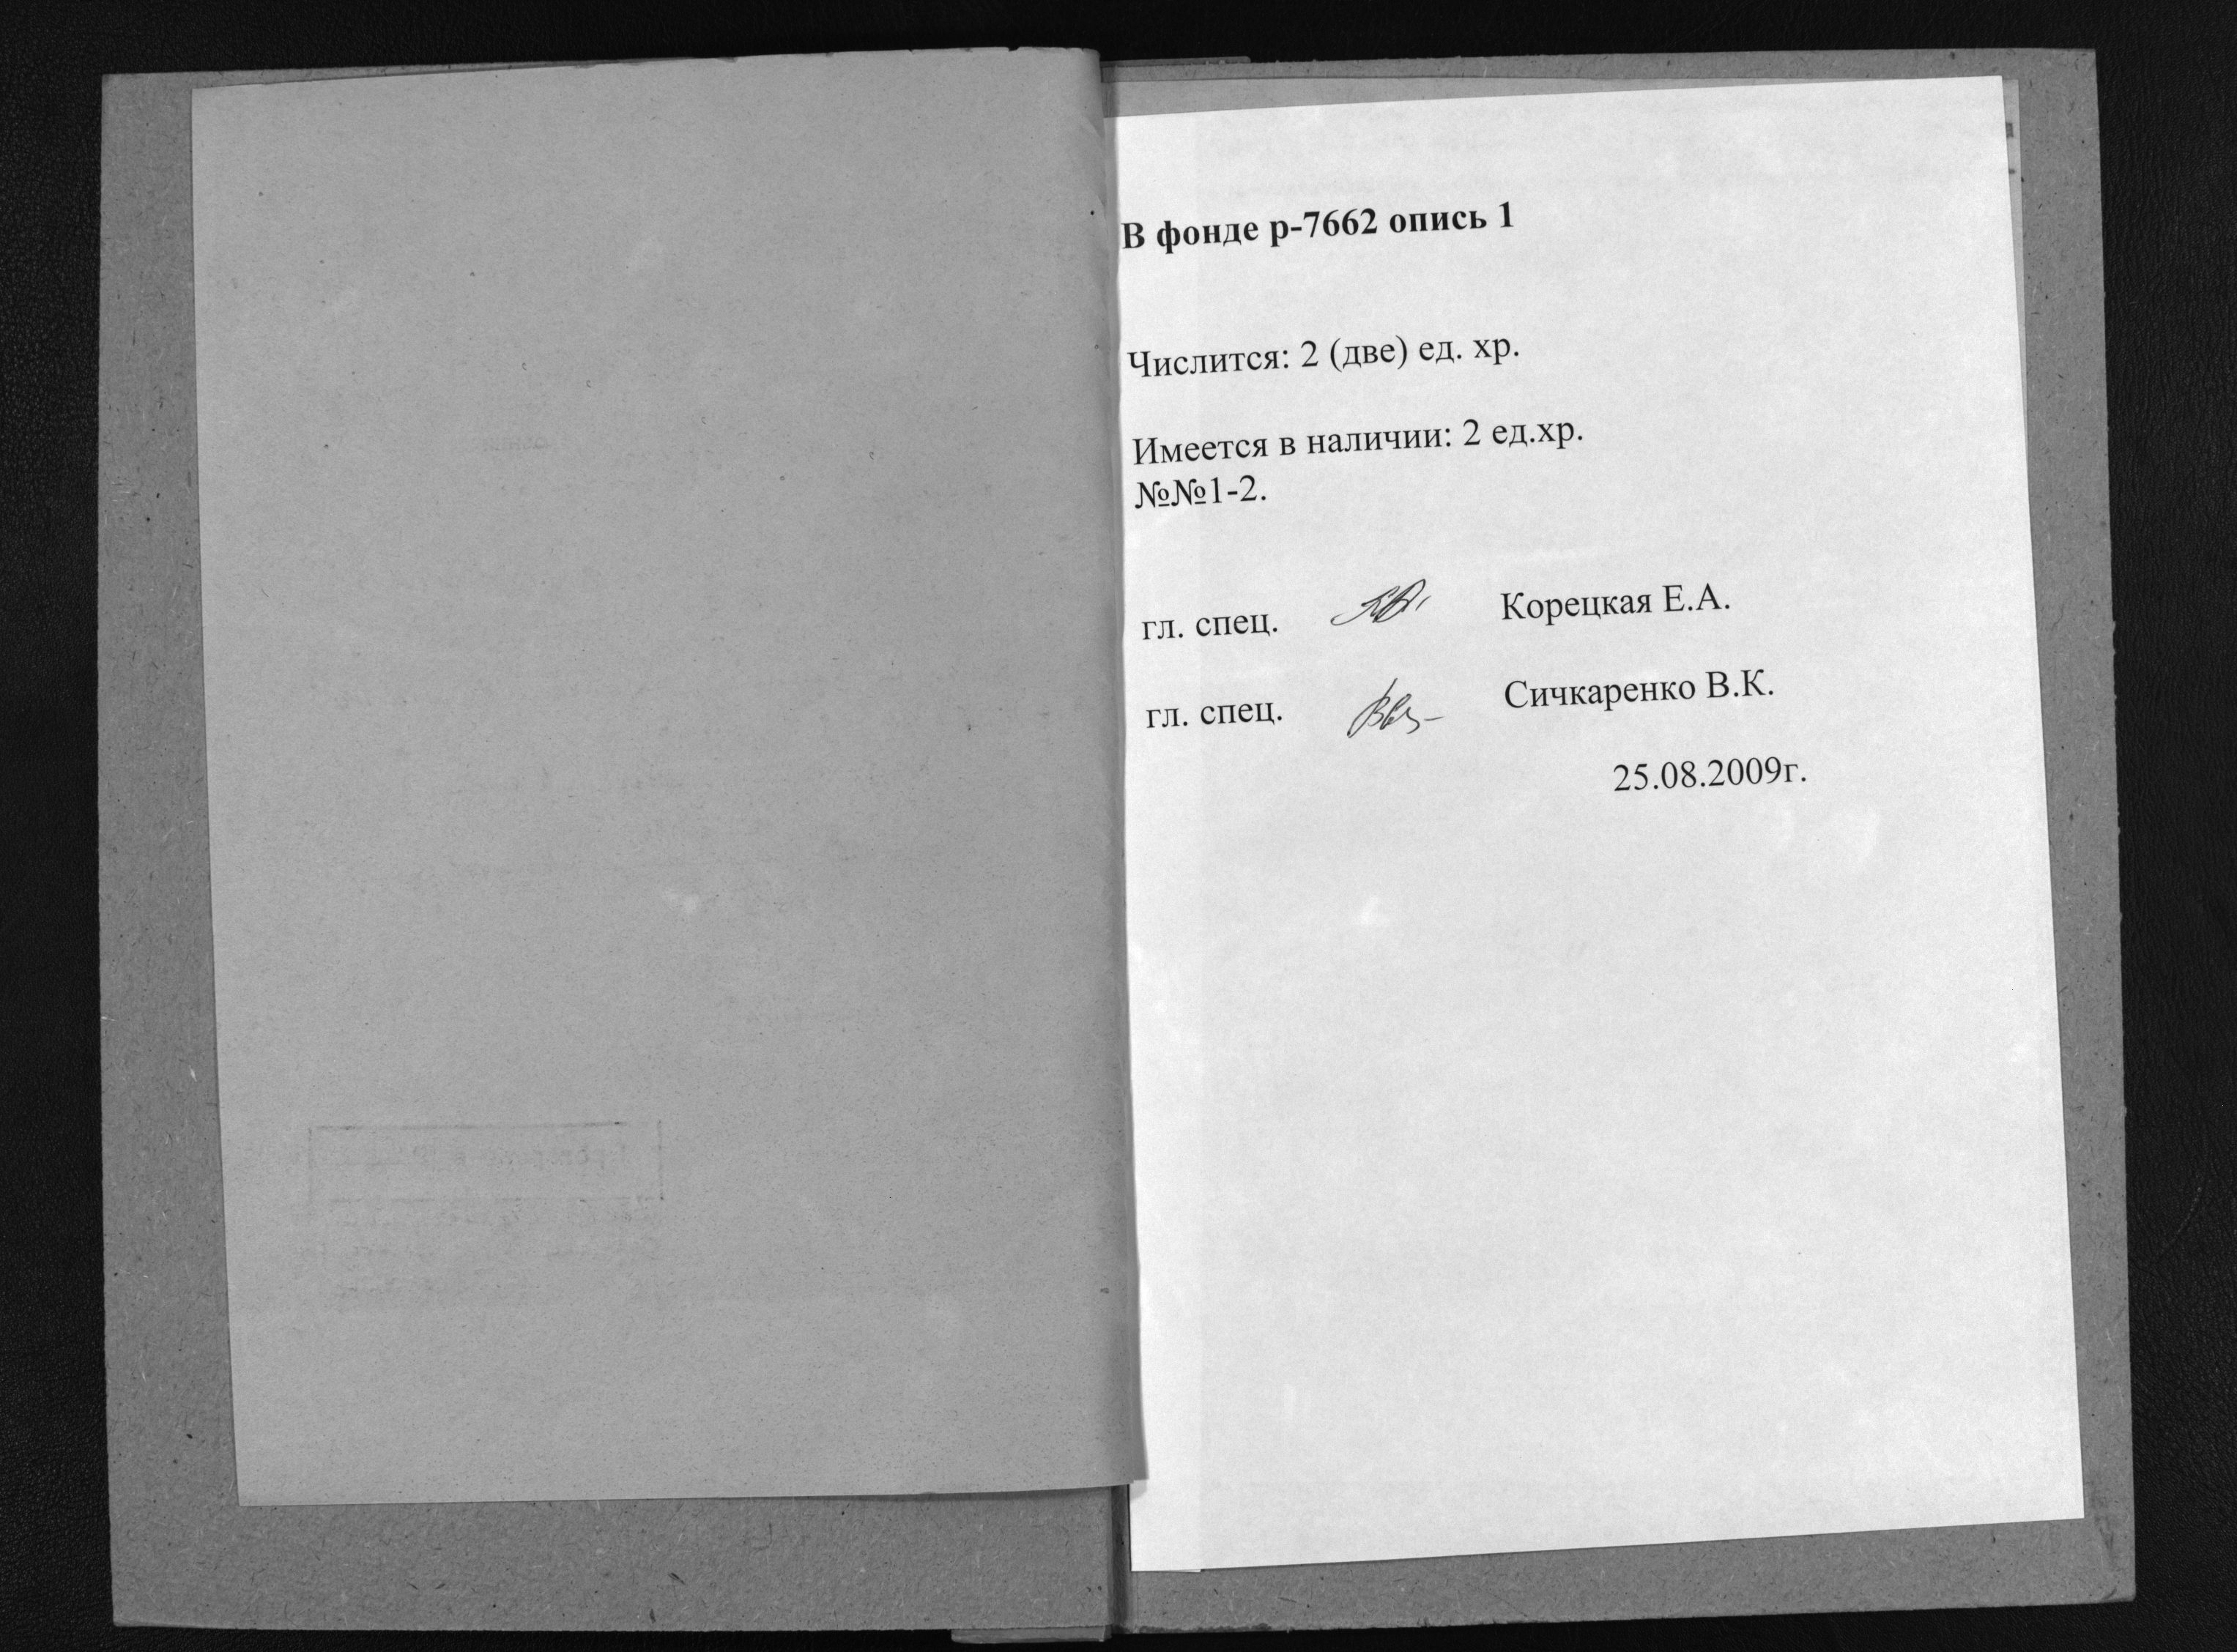 В фонде р-7662 опись 1
Числится: 2 (две) ед. хр.
Имеется в наличии: 2 ед.хр.
№№1-2.
гл. спец. Корецкая Е.А.
гл. спец. Сичкаренко В.К.
25.08.2009г.